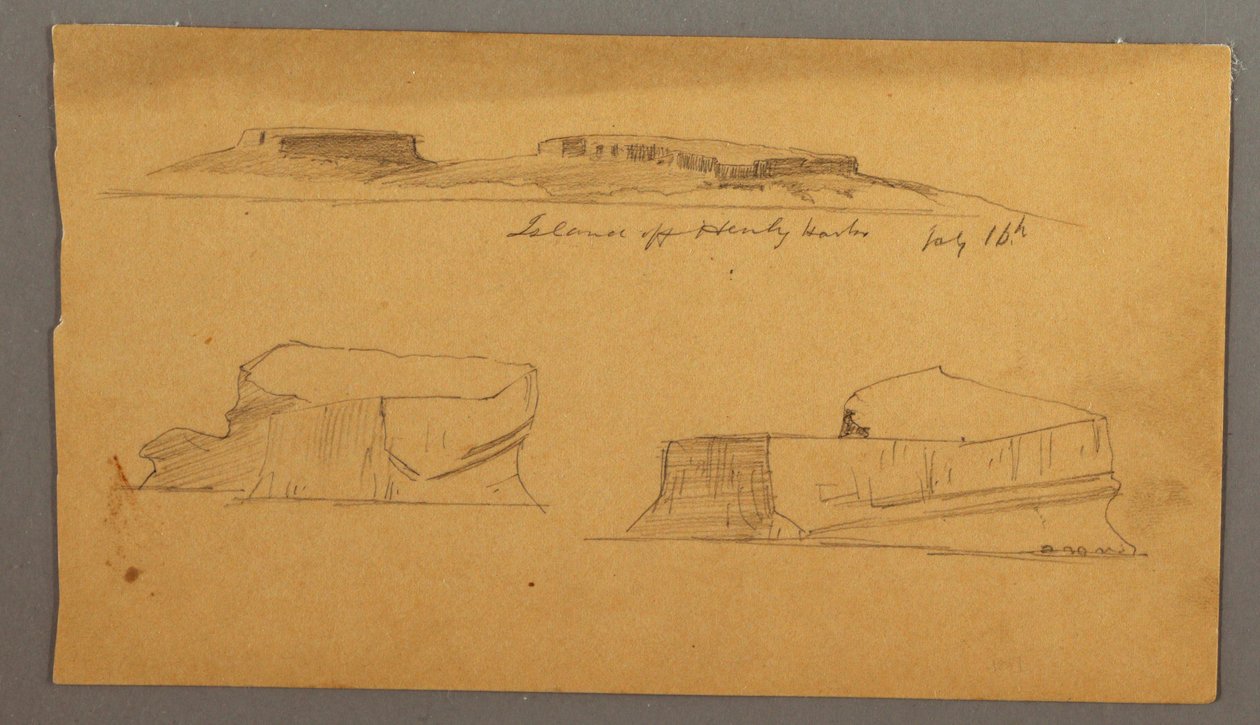 Island off Henly Harbor July 16th